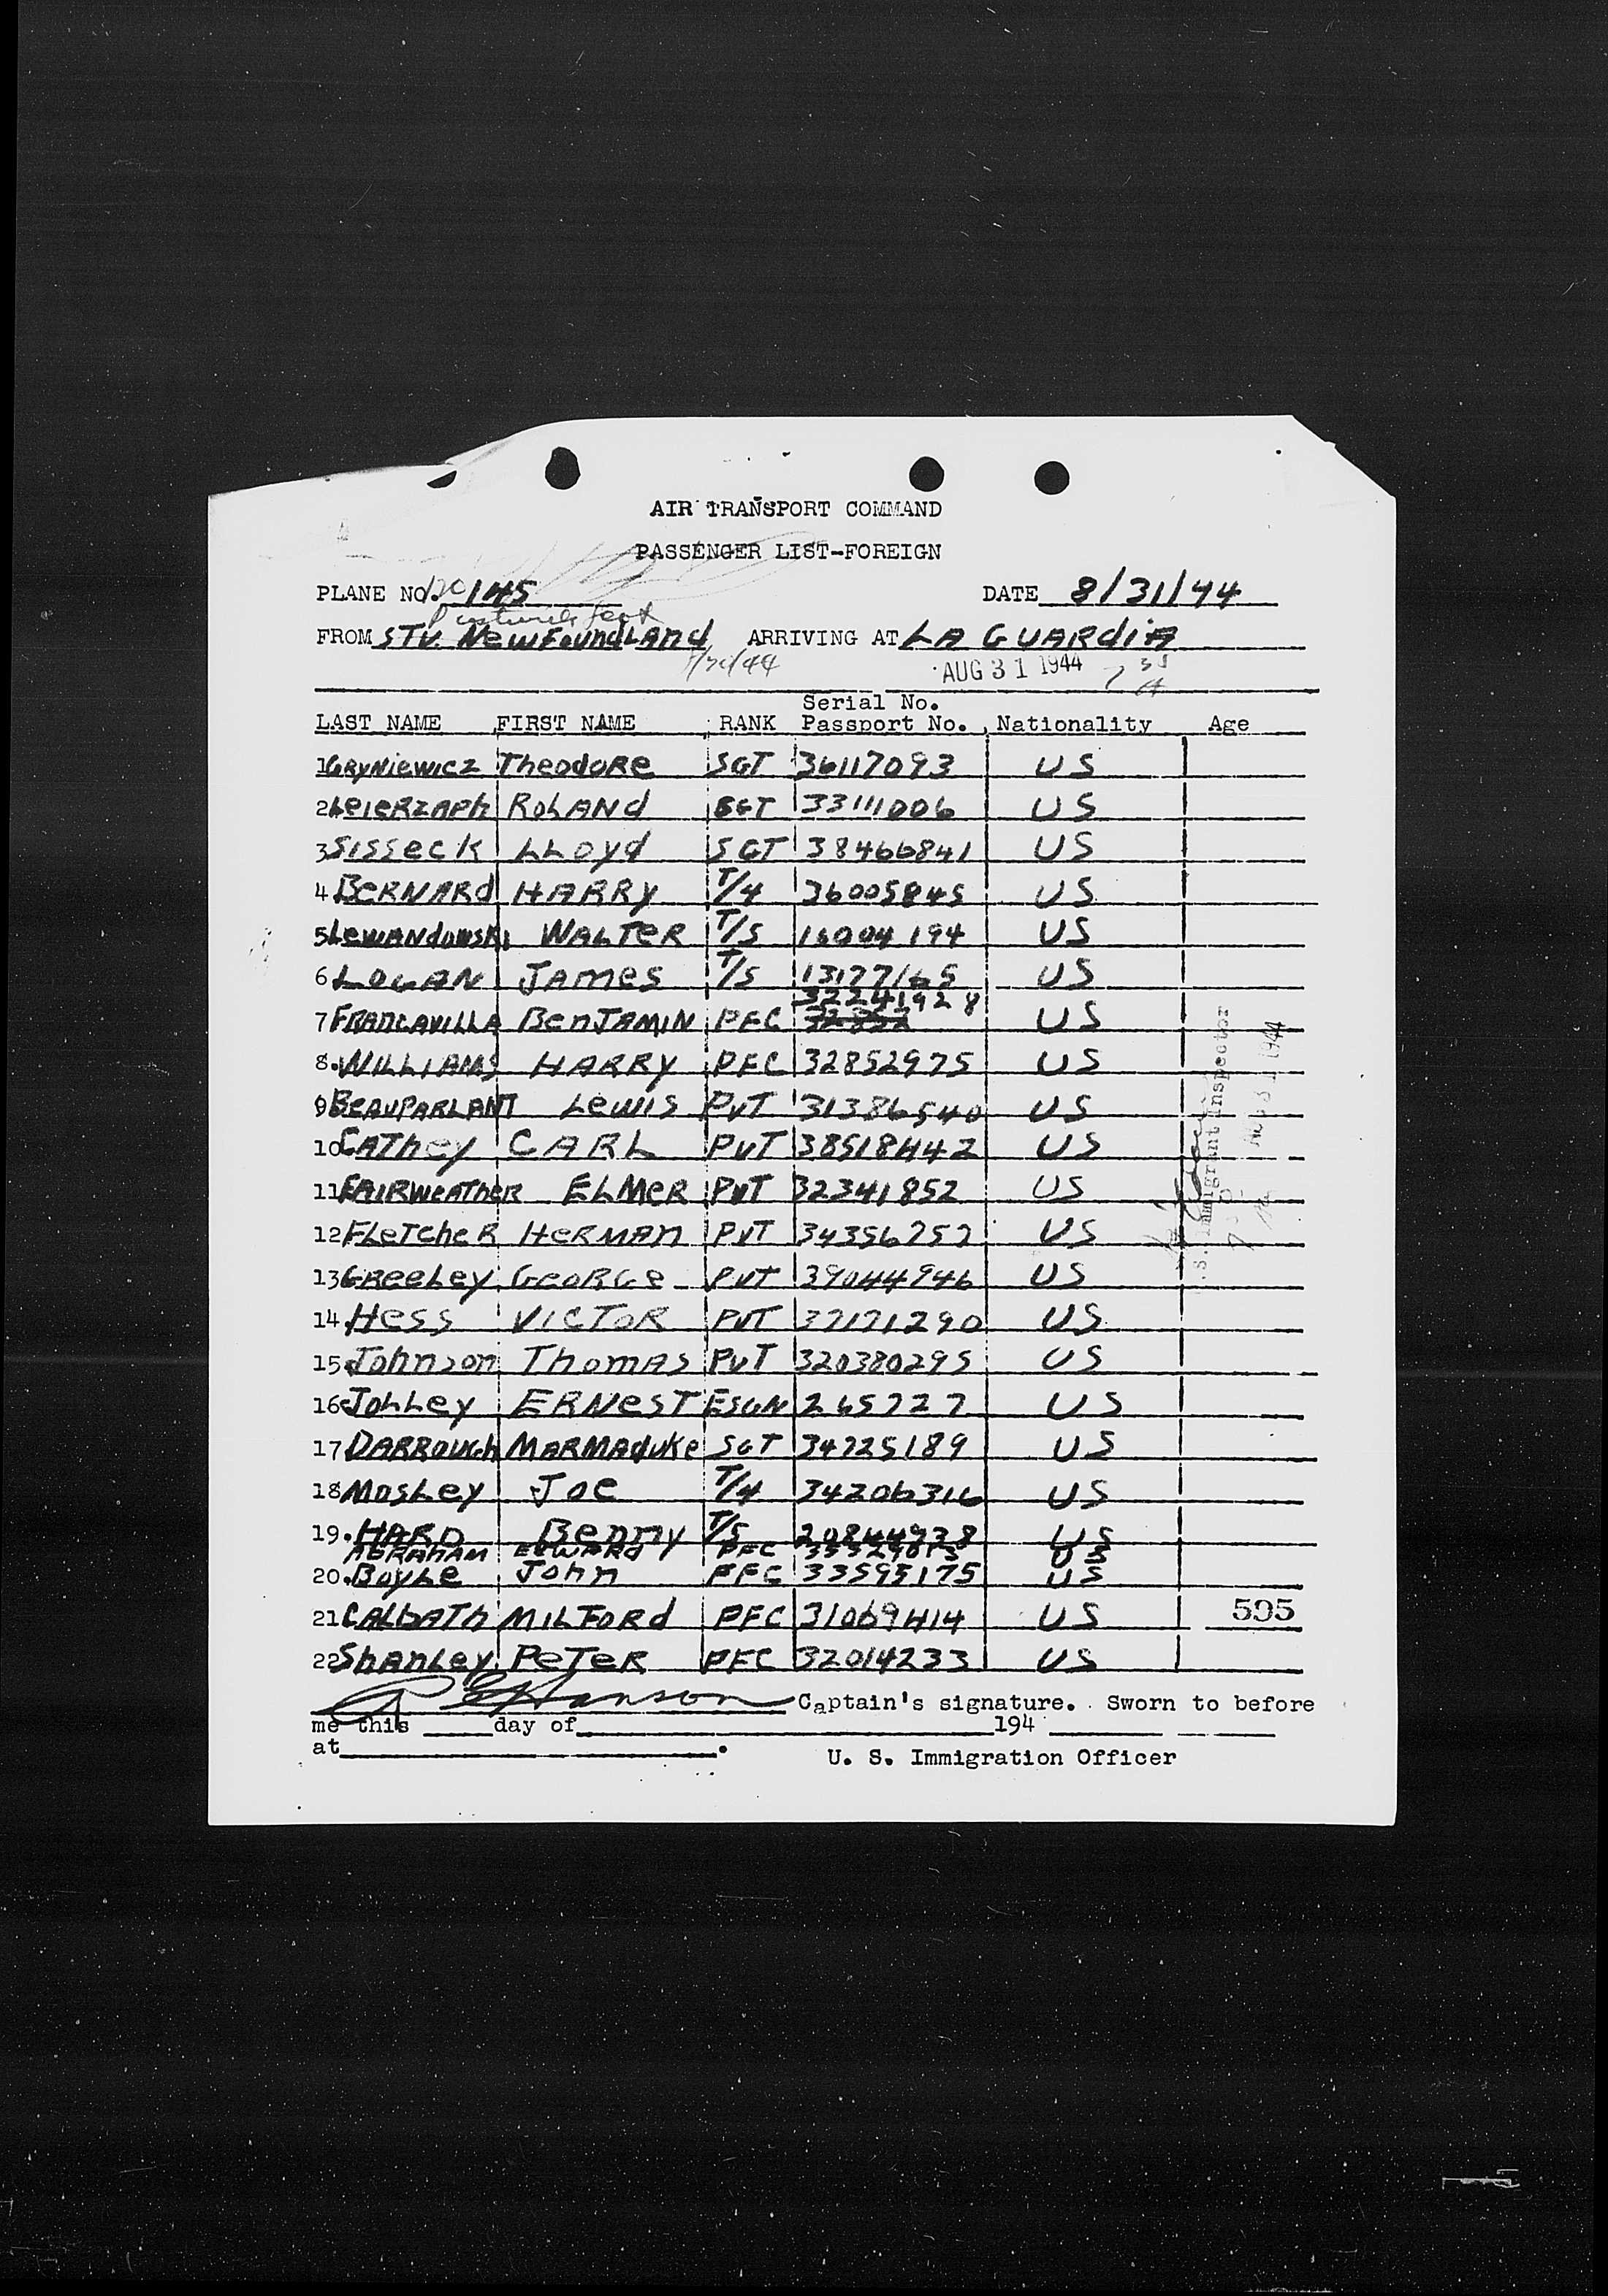 AIR TRANSPORT COMMAND
PASSENGER LIST-FOREIGN
PLANE NO. 145 DATE 8/31/44
FROM STV. NewFoundLand ARRIVING AT LA GUARdiA
AUG 31 1944
Serial No.
LAST NAME FIRST NAME RANK Passport No. Nationality Age
1 GRyNiewicz TheodoRe SGT 36117093 US
2 LeieRzAph RoLANd SGT 33111006 US
3 Sisseck LLoyd SGT 38466841 US
4 BeRNARd HARRy T/4 36005845 US
5 LewANdowski WALTeR T/5 16004194 US
6 LOGAN JAmes T/5 13177165 US
32241928
7 FRANCAVILLA BenJAMIN PFC 32852 US
8. WILLIAMS HARRy PFC 32852975 US
9 BeAUPARLANT Lewis PvT 31386540 US
10 CAThey CARL PvT 38518442 US
11 FAIRweATheR ELMeR PvT 32341852 US
12 FLeTcheR HeRMAn PvT 34356757 US
13 GReeLey GeoRGe PvT 39044946 US
14. Hess VICToR PvT 37171290 US
15. Johnson ThomAS PvT 320380295 US
16 JoLLey ERNesT ESGN 265727 US
17 DARROUGh MARMAduke SGT 34725189 US
18 MosLey Joe T/4 34206316 US
19. HARD Benny T/5 20844938 US
ABRAHAM EdwARd PFC US
20. BoyLe John PFC 33595175 US
21 CALbATh MILFoRd PFC 31069414 US 595
22 ShAnLey PeTeR PFC 32014233 US
Hanson Captain's signature. Sworn to before
me this day of 194
at .
U. S. Immigration Officer
U.S. Immigrant Inspector
AUG 31 1944